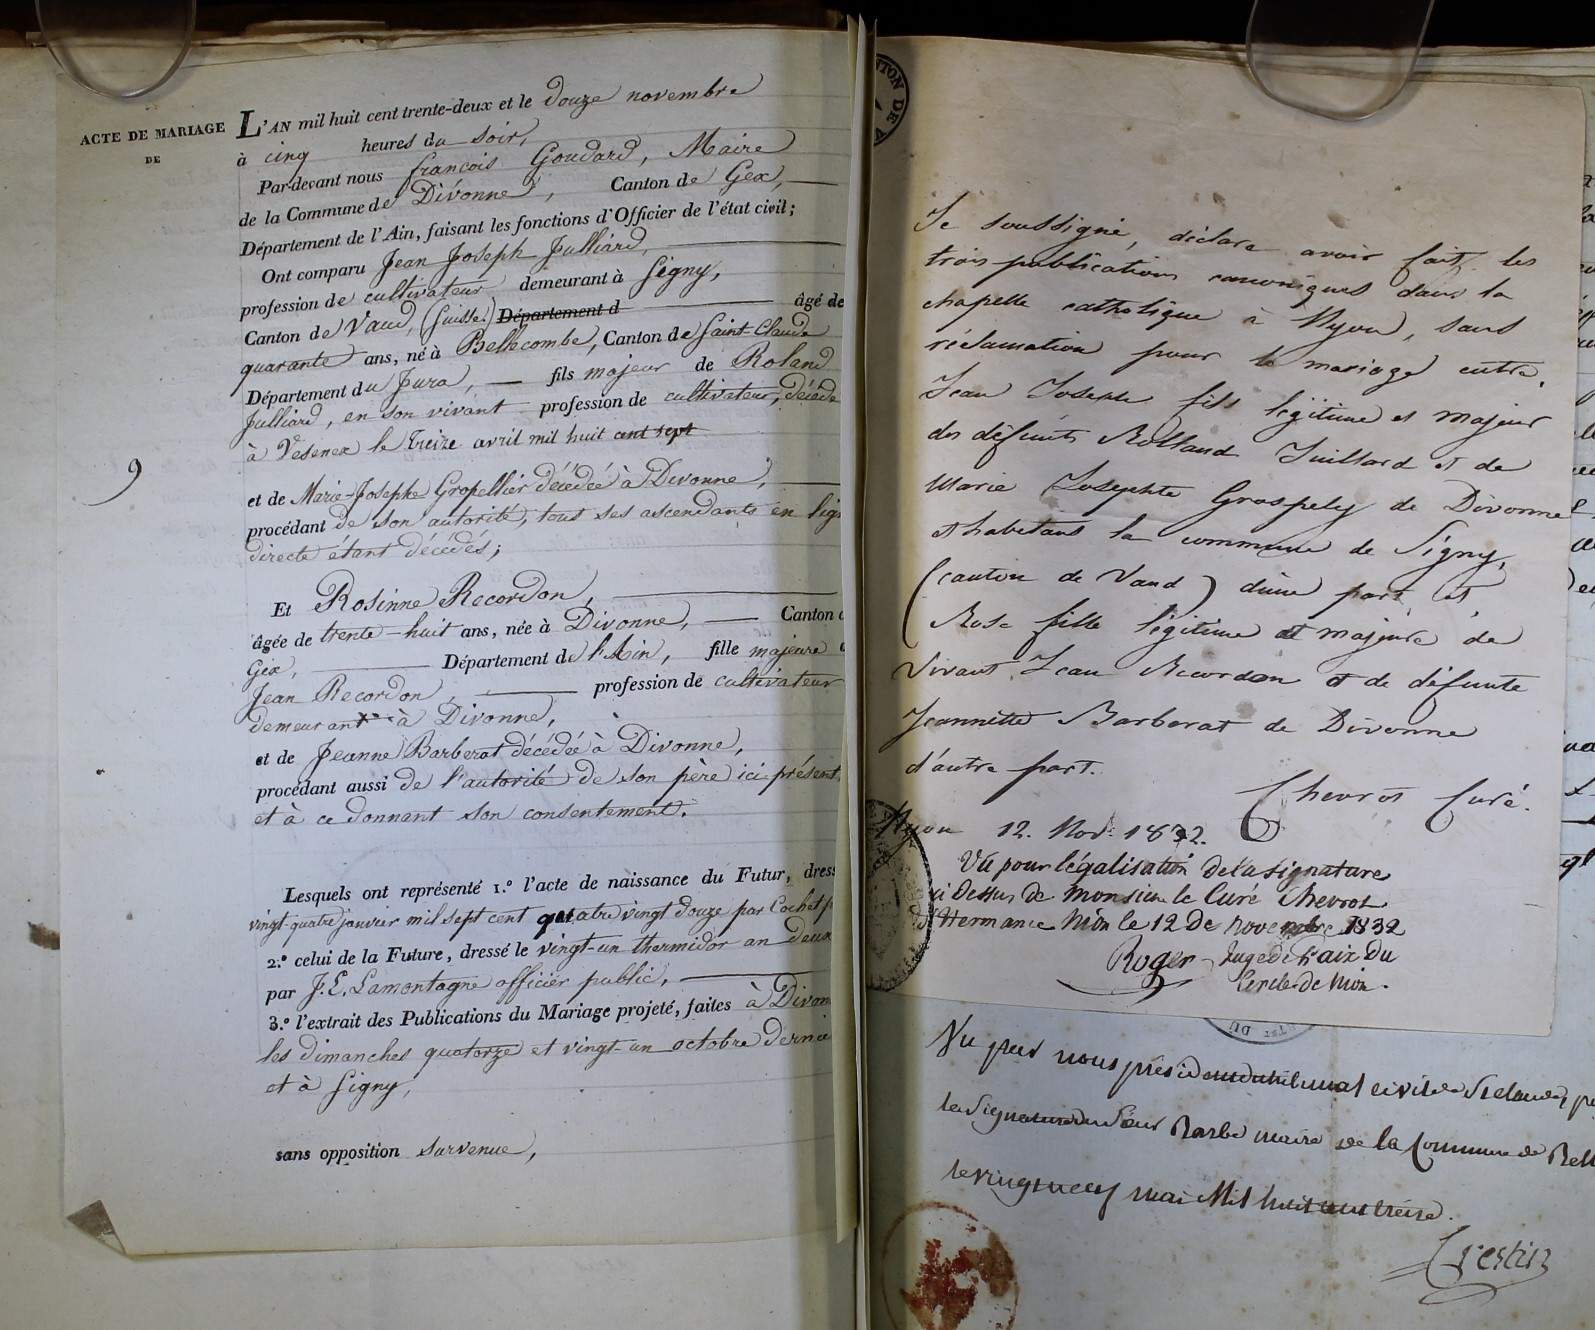 ACTE DE MARIAGE
DE
L'AN mil huit cent trente-deux et le douze novembre
à cinq heures du soir,
Par-devant nous françois Goudard, Maire
de la Commune de Divonne, Canton de Gex,
Département de l'Ain, faisant les fonctions d'Officier de l'état civil;
Ont comparu Jean Joseph Julliard,
profession de cultivateur demeurant à Signy,
Canton de Vaud, (Suisse) Département d âgé de
quarante ans, né à Bellecombe, Canton de Saint-Claude
Département du Jura, fils majeur de Roland
Julliard, en son vivant profession de cultivateur, décédé
à Vesenex le treize avril mil huit cent sept
9
et de Marie-Josephe Gropellier décédée à Divonne,
procédant de son autorité, tous ses ascendants en lig
directe étant décédés;
Et Rosinne Recordon,
âgée de trente-huit ans, née à Divonne, Canton d
Gex, Département de l'Ain, fille majeure d
Jean Recordon, profession de cultivateur
demeurant à Divonne,
et de Jeanne Barberat décédée à Divonne,
procédant aussi de l'autorité de son père ici présent,
et à ce donnant son consentement.
Lesquels ont représenté 1.º l'acte de naissance du Futur, dress
vingt-quatre janvier mil sept cent quatre vingt douze par Cochet
2.º celui de la Future, dressé le vingt-un thermidor an deux
par J. E. Lamontagne officier public,
3.º l'extrait des Publications du Mariage projeté, faites à Divon
les dimanches quatorze et vingt-un octobre dernie
et à Signy,
sans opposition survenue,
Je soussigné, déclare avoir fait les
trois publications canoniques dans la
chapelle catholique à Nyon, sans
réclamation pour le mariage entre
Jean Joseph fils légitime et majeur
des défunts Rolland Juillard et de
Marie Josephte Grospely de Divonne
et habitans la commune de Signy,
(canton de Vaud) d'une part, et
Rose fille légitime et majeure de
vivant Jean Recordon et de défunte
Jeannette Barberat de Divonne
d'autre part.
Chevrot Curé.
Nyon 12. Nov. 1832.
Vu pour légalisation de la signature
ci dessus de monsieur le Curé Chevrot
d'Hermance Nion le 12 de novembre 1832
Roger Juge de Paix du
Cercle de Nion.
Vu par nous président du tribunal civil de St Claude, p
la signature du Sieur Barbe maire de la Commune de Bell
le vingt neuf mai Mil huit cent treize.
Crestin